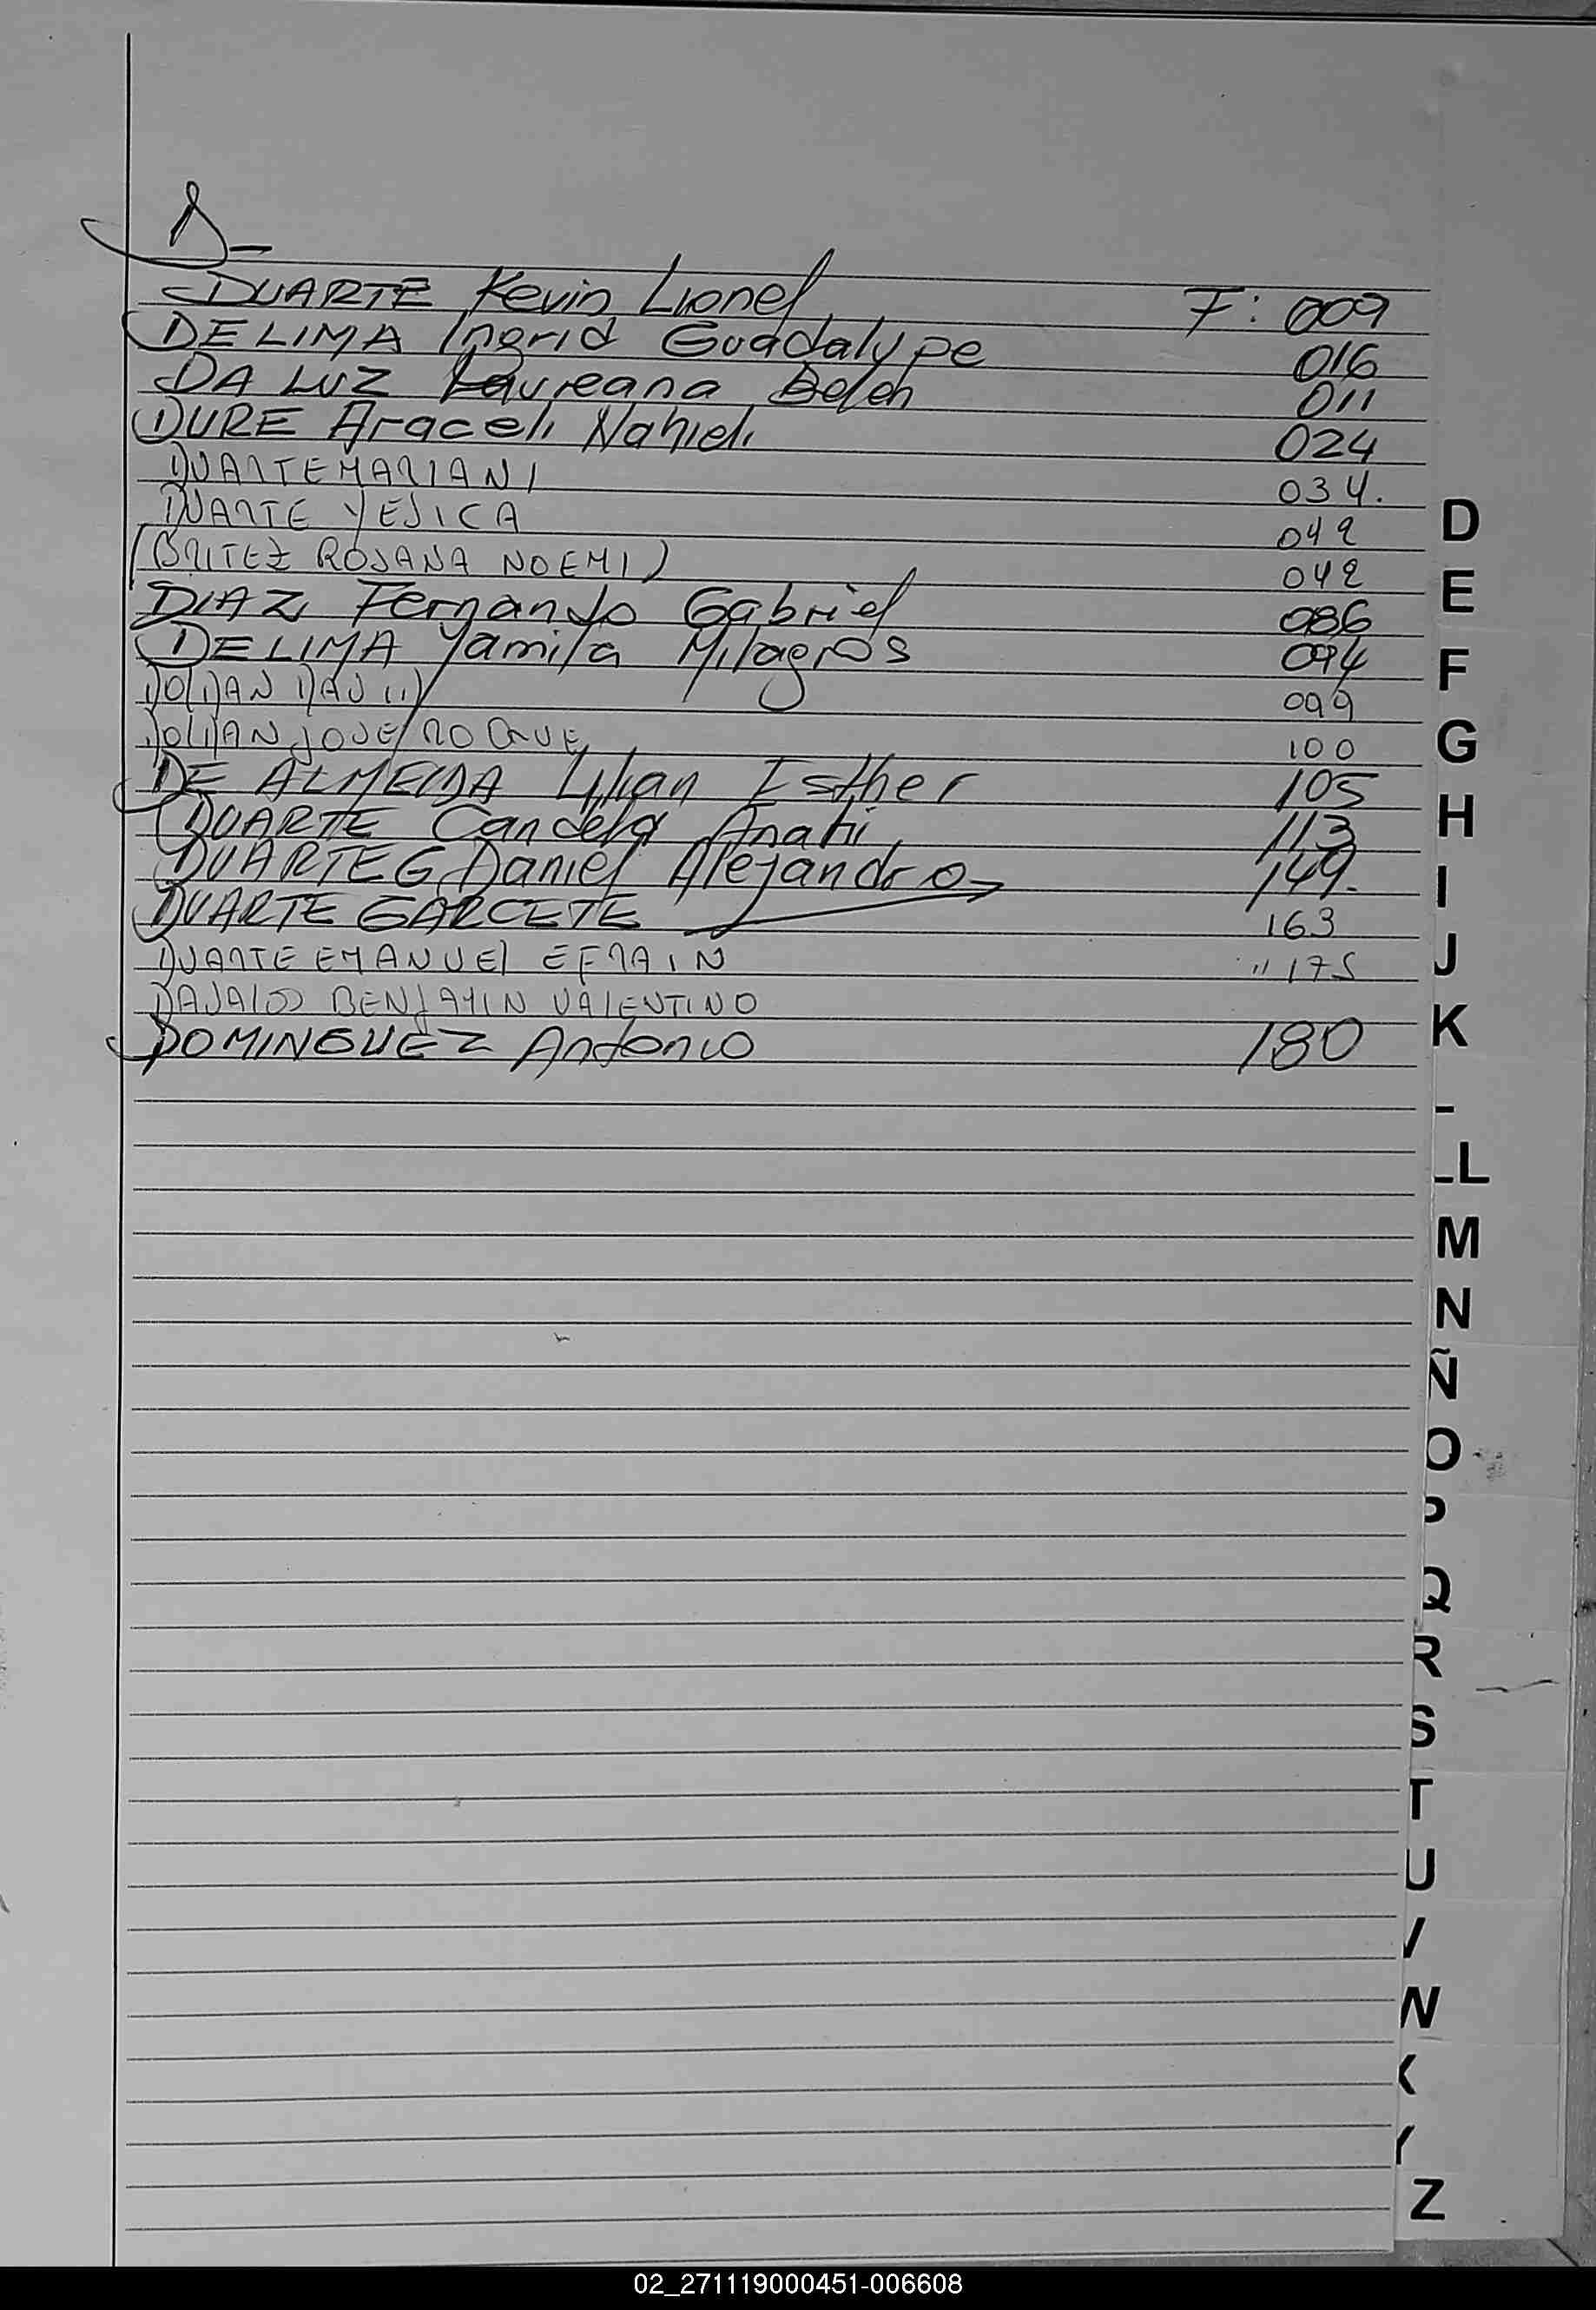 D-
DUARTE Kevin Lionel F: 009
DE LIMA Ingrid Guadalupe 016
DA LUZ Laureana Belen 011
DURE Araceli Nahieli 024
DUARTE MARIANI 034.
DUARTE YESICA 042
(BRITEZ ROSANA NOEMI) 042
DIAZ Fernando Gabriel 086
DE LIMA Yamila Milagros 094
099
JOSE ROQUE 100
DE ALMEIDA Lilian Esther 105
DUARTE Candela Anahi 113
DUARTE G Daniel Alejandro 149.
DUARTE GARCETE 163
DUARTE EMANUEL EFRAIN " 175
BENJAMIN VALENTINO
DOMINGUEZ Antonio 180
D
E
F
G
H
I
J
K
L
M
N
Ñ
O
P
Q
R
S
T
U
V
X
Y
Z
02_271119000451-006608